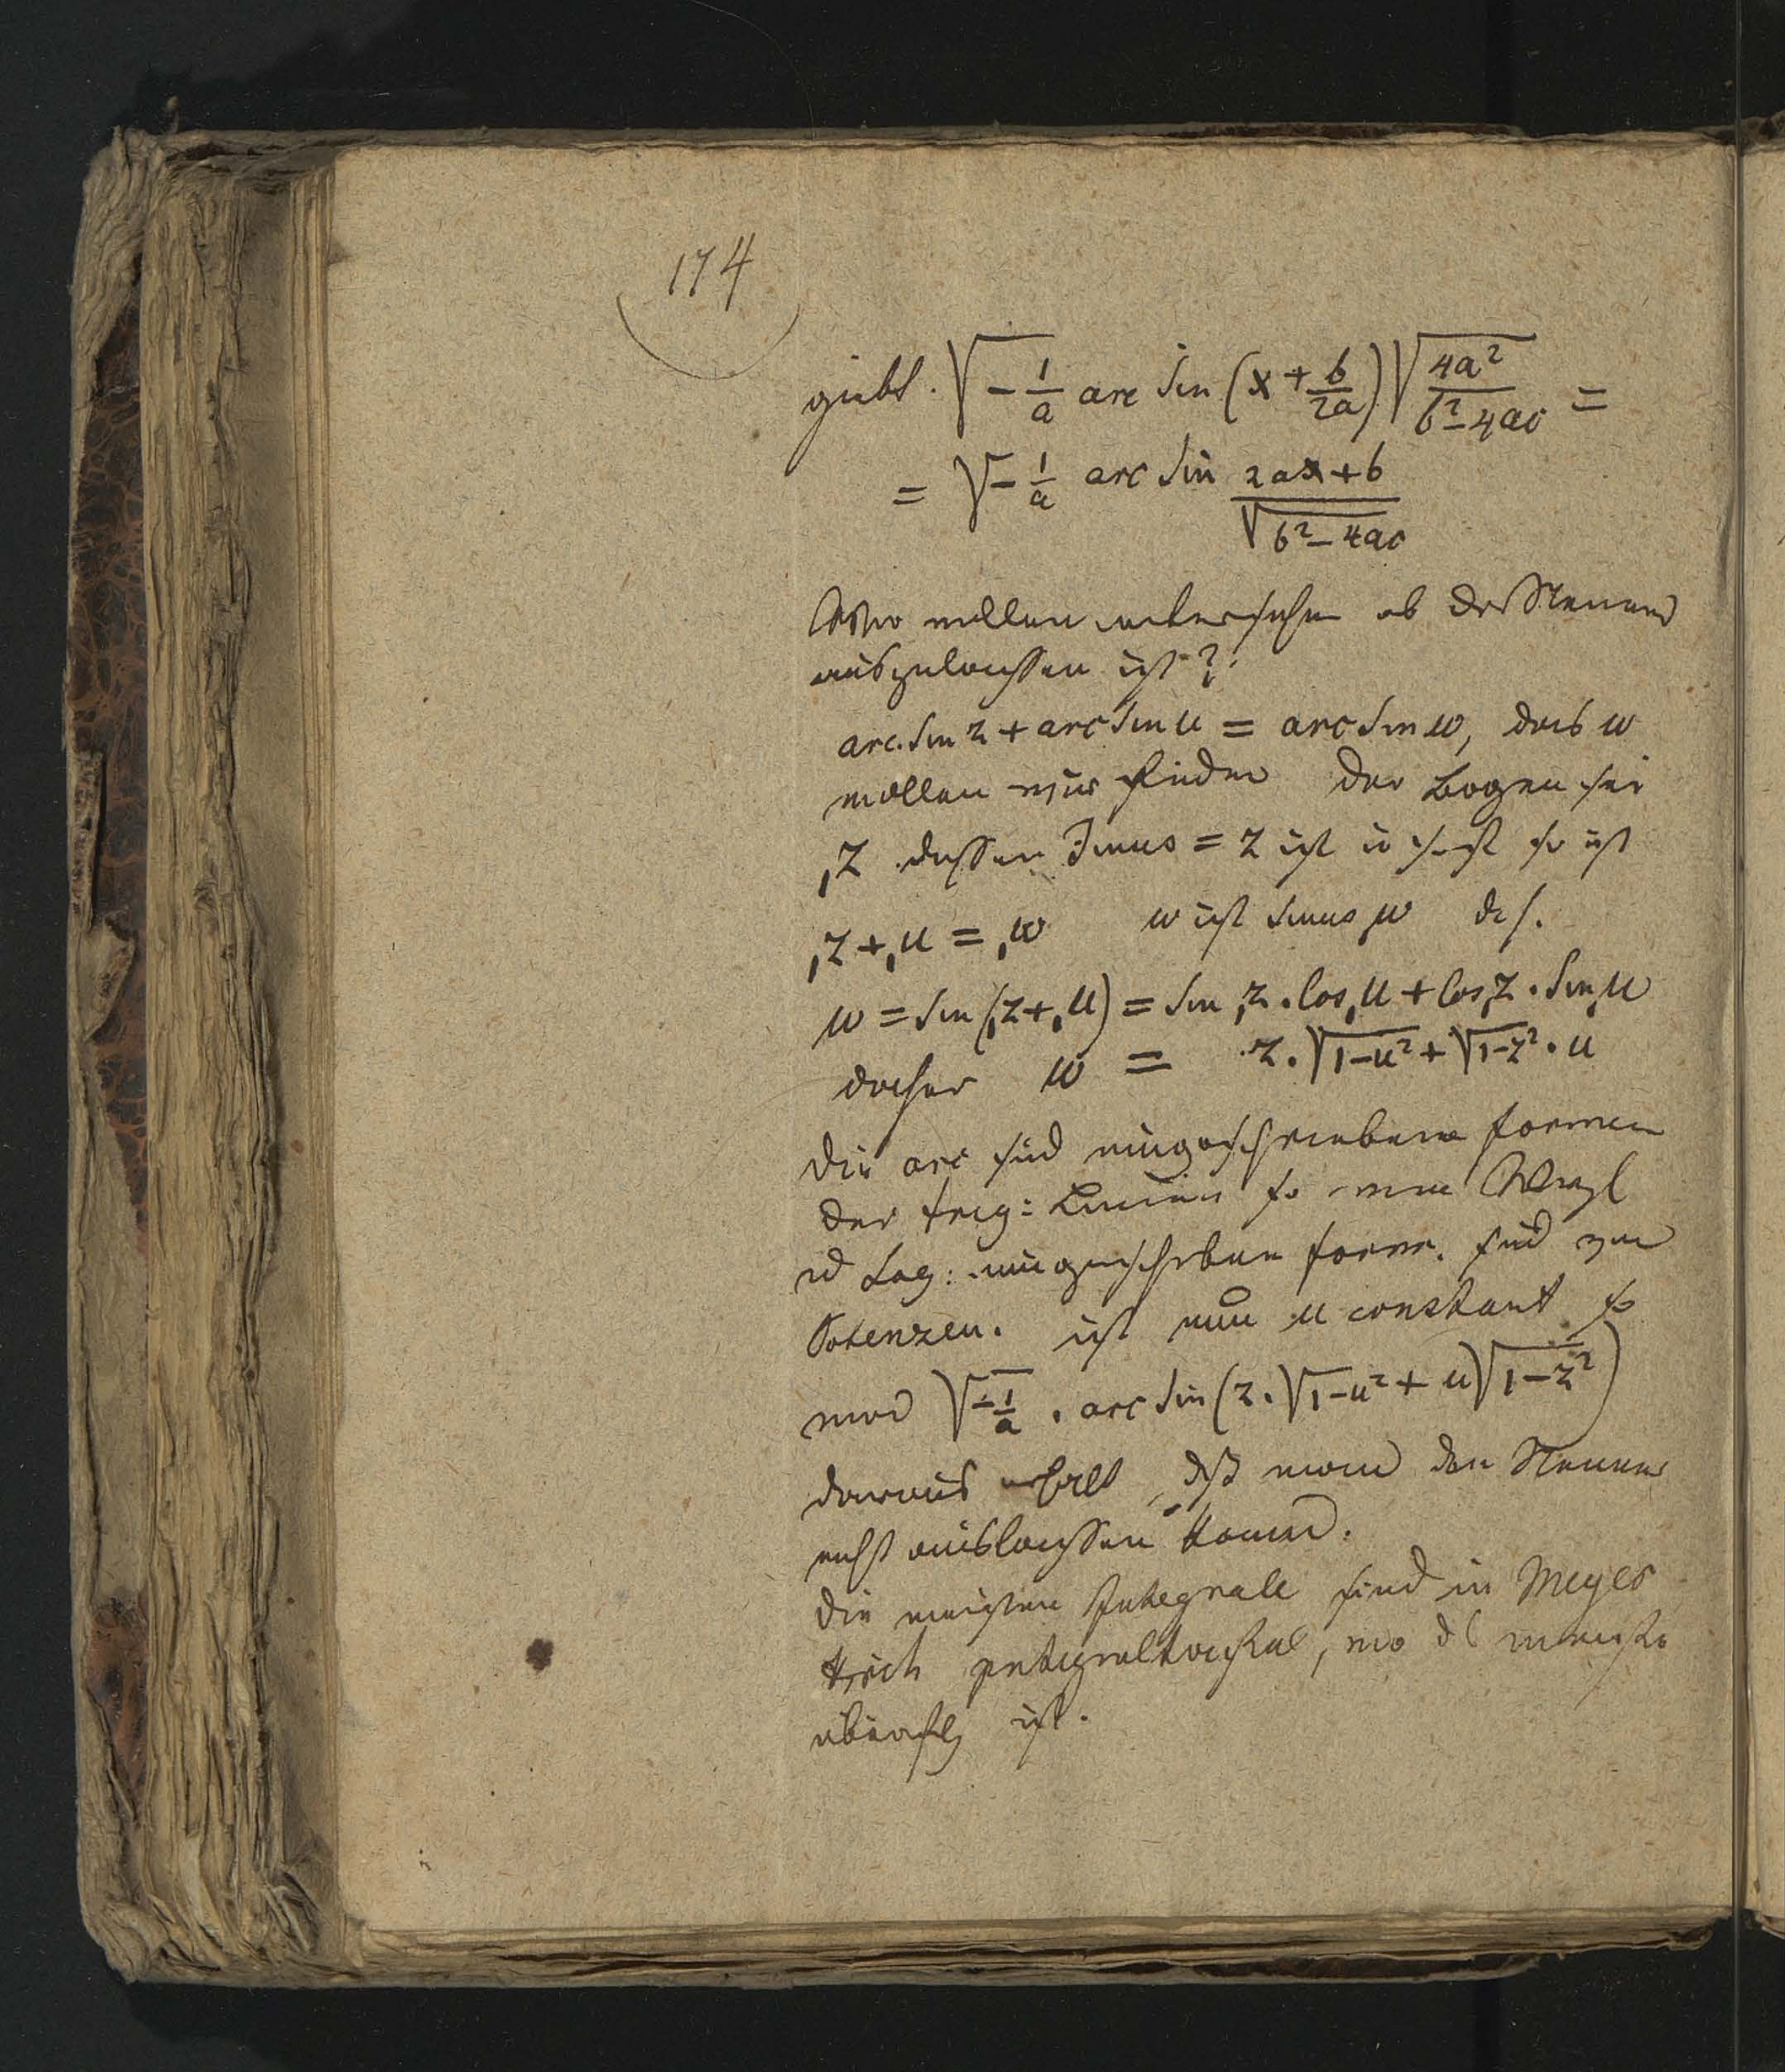 174
giebt. √(-1/a) arc Sin (x + b/2a) √(4a²/(b²-4ac)) =
= √(-1/a) arc Sin (2ax+b)/√(b²-4ac)
Wir wollen untersuchen ob der Nenner
auszulassen ist?
arc. Sin z + arc Sin u = arc Sin w, das w
wollen wir finden der Bogen sei
,z dessen Sinus = z ist so ist
,z + ,u = ,w w ist Sinus ,w d. h.
w = Sin (,z + ,u) = Sin ,z . Cos ,u + Cos ,z . Sin ,u
daher w = z . √(1-u²) + √(1-z²) . u
Die arc sind umgeschriebene formen
der trig: Linien so wie Wurzl
u Log: umgeschriebene form. sind von
Potenzen. ist nun u constant so
wird √(-1/a) . arc Sin (z . √(1-u²) + u √(1-z²))
daraus erhelt, dß man den Nenner
nicht auslassen kann.
Die meisten Integrale sind in Meyer
Hirsch Integraltafel, wo
ist.